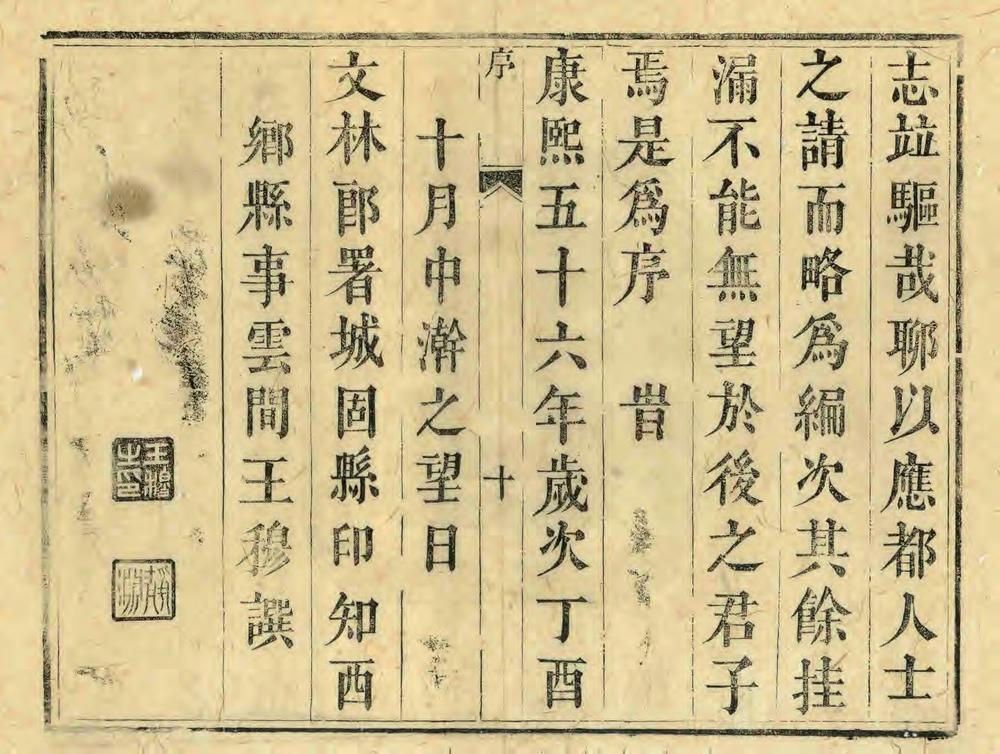 志竝驅哉聊以應都人士
之請而略爲編次其餘挂
漏不能無望於後之君子
焉是爲序 旹
康熙五十六年歲次丁酉
序 十
十月中澣之望日
文林郎署城固縣印知西
鄉縣事雲間王穆撰
王穆之印